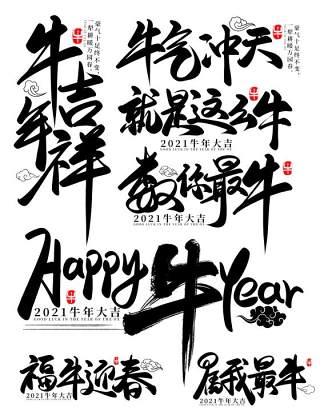 牛年吉祥
豪气十足终不变。
一犁耕暖万园春。
牛
牛气冲天
豪气十足终不变。
一犁耕暖万园春。
牛
就是这么牛
牛
2021牛年大吉
GOOD LUCK IN THE YEAR OF THE OX
数你最牛
牛
2021牛年大吉
GOOD LUCK IN THE YEAR OF THE OX
Happy牛Year
牛
2021牛年大吉
GOOD LUCK IN THE YEAR OF THE OX
福牛迎春
2021牛年大吉
属我最牛
2021牛年大吉